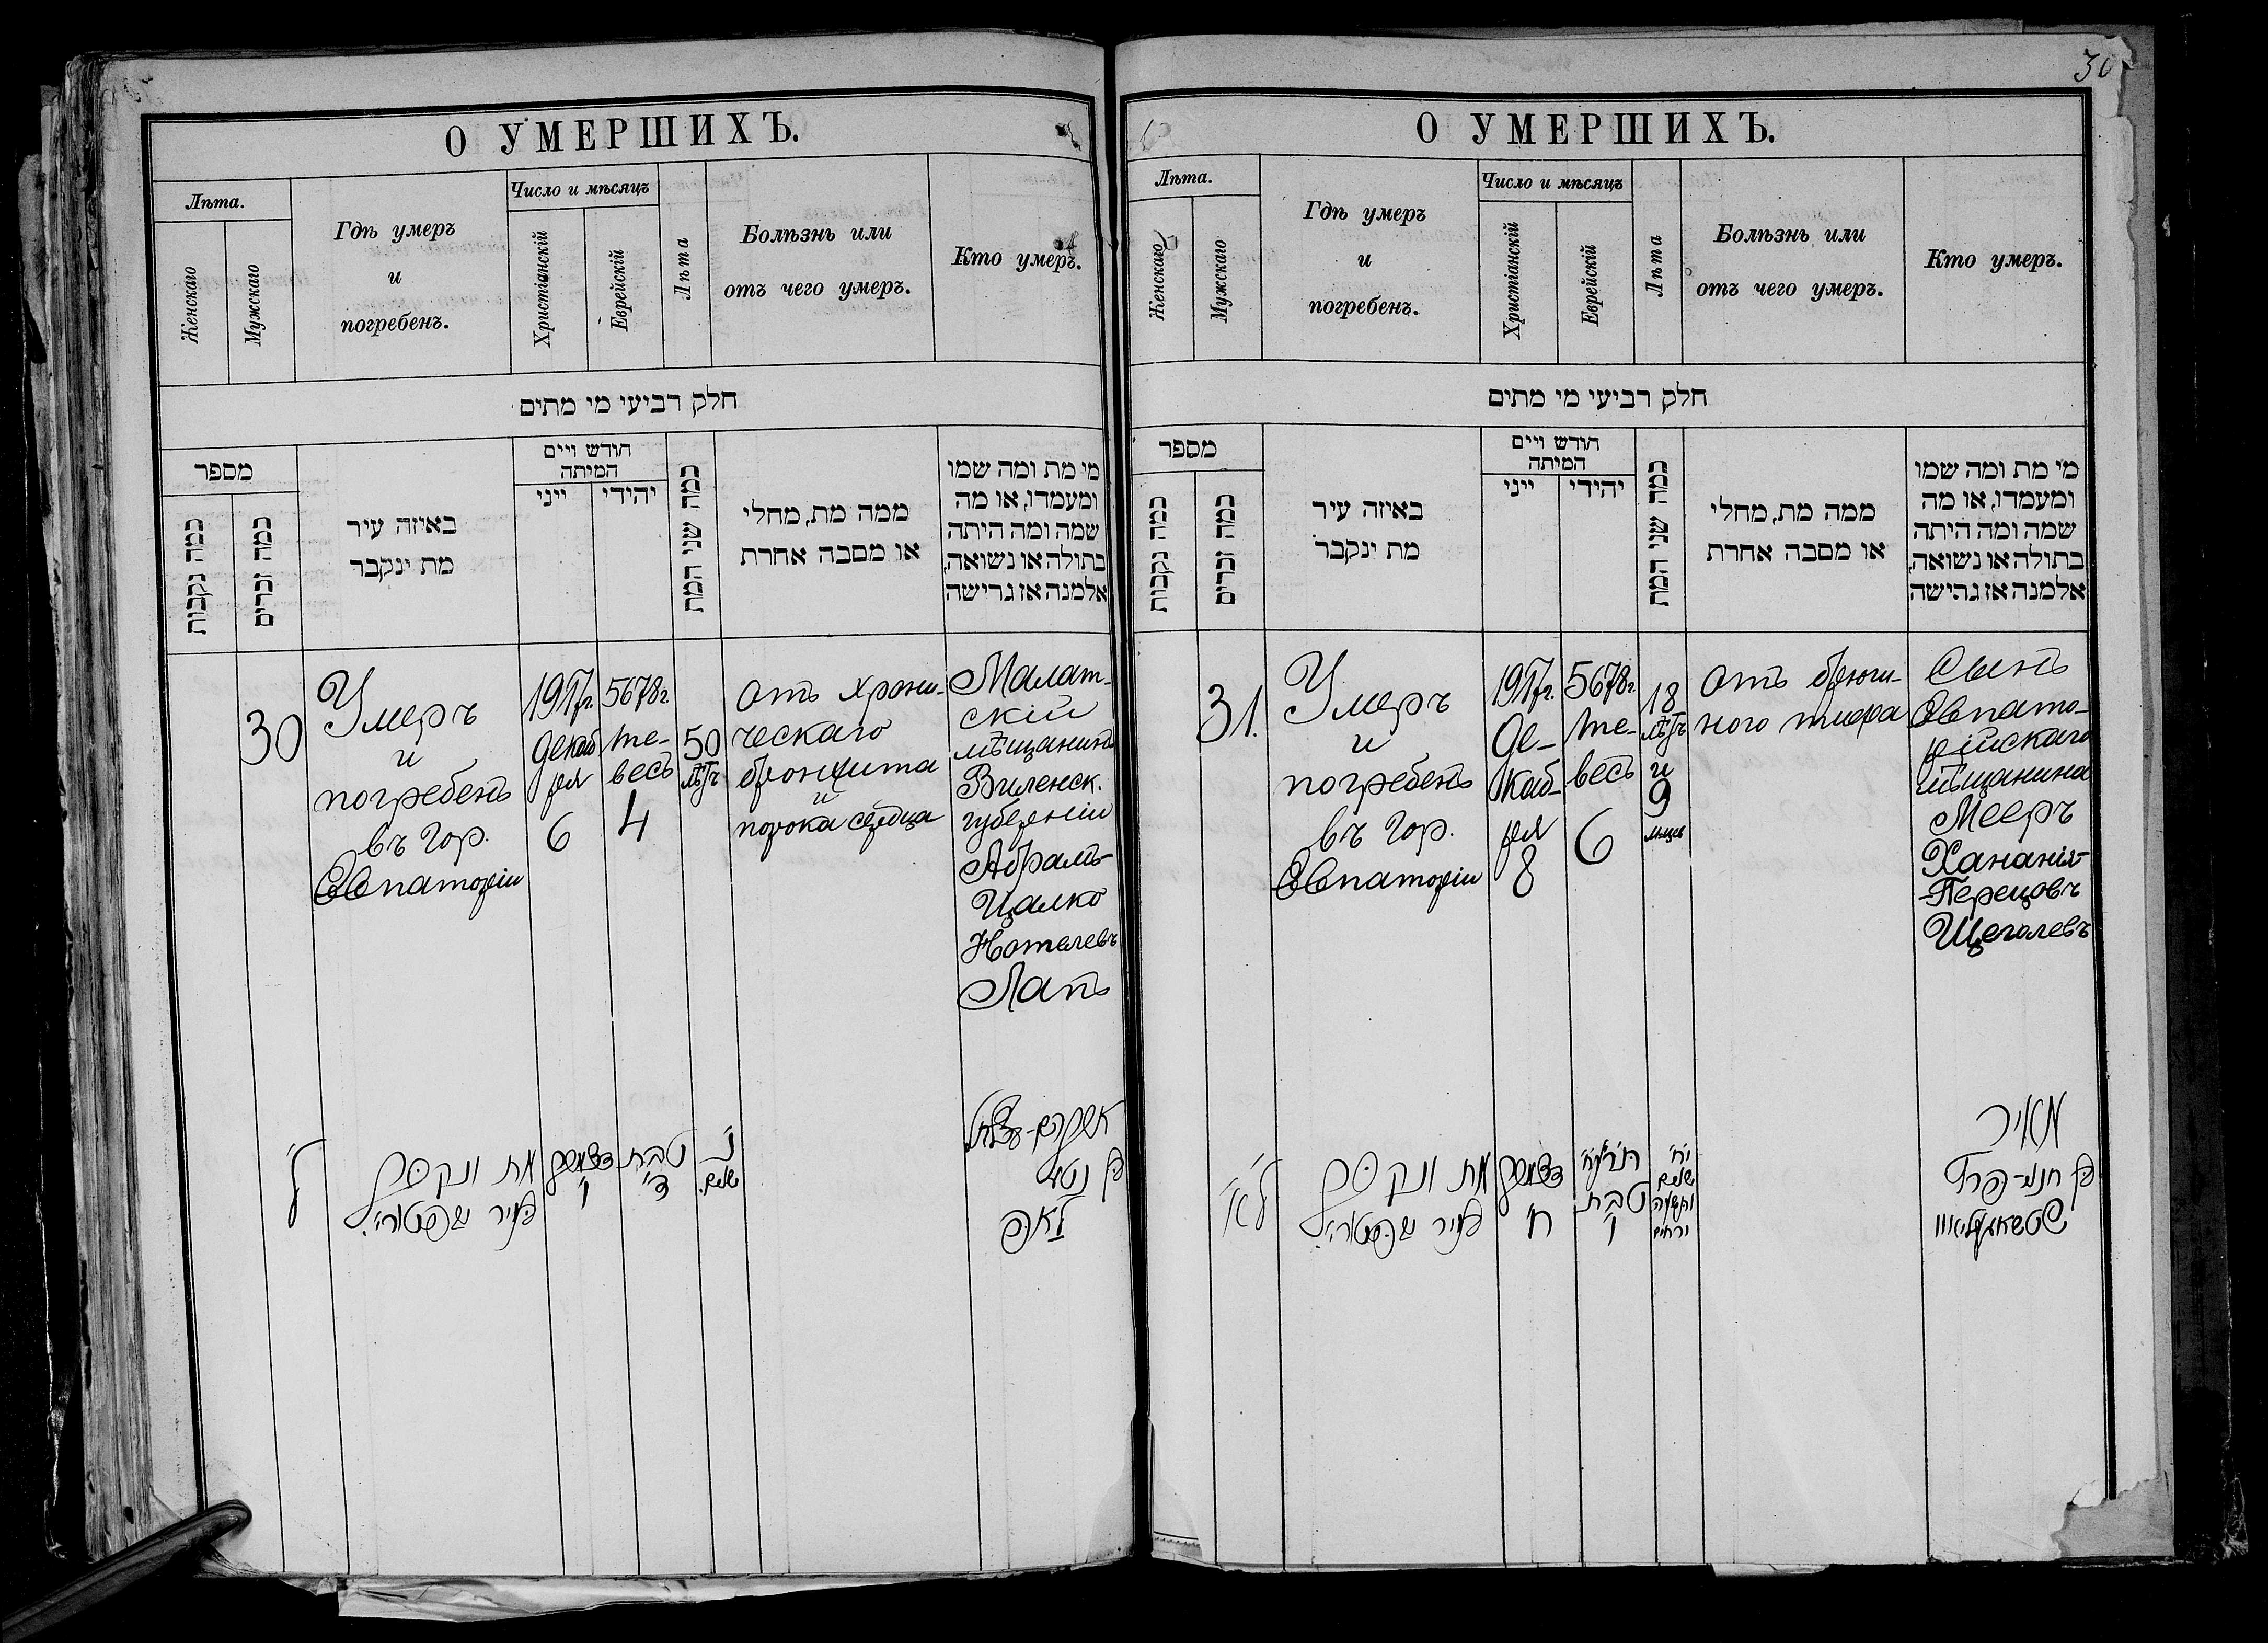 О УМЕРШИХЪ.
Лѣта.
Женскаго
Мужскаго
Гдѣ умеръ
и
погребенъ.
Число и мѣсяцъ
Христіанскій
Еврейскій
Лѣта
Болѣзнь или
отъ чего умеръ.
Кто умеръ.
חלק רביעי מי מתים
מספר
כמה נקבות
כמה זכרים
באיזה עיר
מת ינקבר
חודש ויים
המיתה
ייני
יהודי
כמה שני המת
ממה מת, מחלי
או מסבה אחרת
מי מת ומה שמו
ומעמדו, או מה
שמה ומה היתה
בתולה או נשואה,
אלמנה אז גרישה
30
Умеръ
и
погребенъ
въ гор.
Евпаторіи
1917г.
декаб
ря
6
5678г.
те-
весъ
4
50
лѣтъ
отъ хрони-
ческаго
бронхита
и
порока сердца
Малат-
скій
мѣщанинъ
Виленск.
губерніи
Абрамъ-
Цалко
Нотелевъ
Лапъ
ל'
מת ונקבר
בעיר
דצמבר
ו'
טבת
ד'
נ'
שנים
בן נטע
לאפ
30
О УМЕРШИХЪ.
Лѣта.
Женскаго
Мужскаго
Гдѣ умеръ
и
погребенъ.
Число и мѣсяцъ
Христіанскій
Еврейскій
Лѣта
Болѣзнь или
отъ чего умеръ.
Кто умеръ.
חלק רביעי מי מתים
מספר
כמה נקבות
כמה זכרים
באיזה עיר
מת ינקבר
חודש ויים
המיתה
ייני
יהודי
כמה שני המת
ממה מת, מחלי
או מסבה אחרת
מי מת ומה שמו
ומעמדו, או מה
שמה ומה היתה
בתולה או נשואה,
אלמנה אז גרישה
31.
Умеръ
и
погребенъ
въ гор.
Евпаторіи
1917г.
де-
каб-
ря
8
5678г.
те-
весъ
6
18
лѣтъ
и
9
мѣцев
отъ брюш-
ного тифа
Сынъ
Евпато-
рійскаго
мѣщанина
Мееръ
Хананія-
Перецовъ
Щеголевъ
ל"א
מת ונקבר
בעיר
דצמבר
ח'
תרע"ח
טבת
ו'
י"ח
שנים
ותשעה
ירחים
מאיר
בן חנני-פרץ